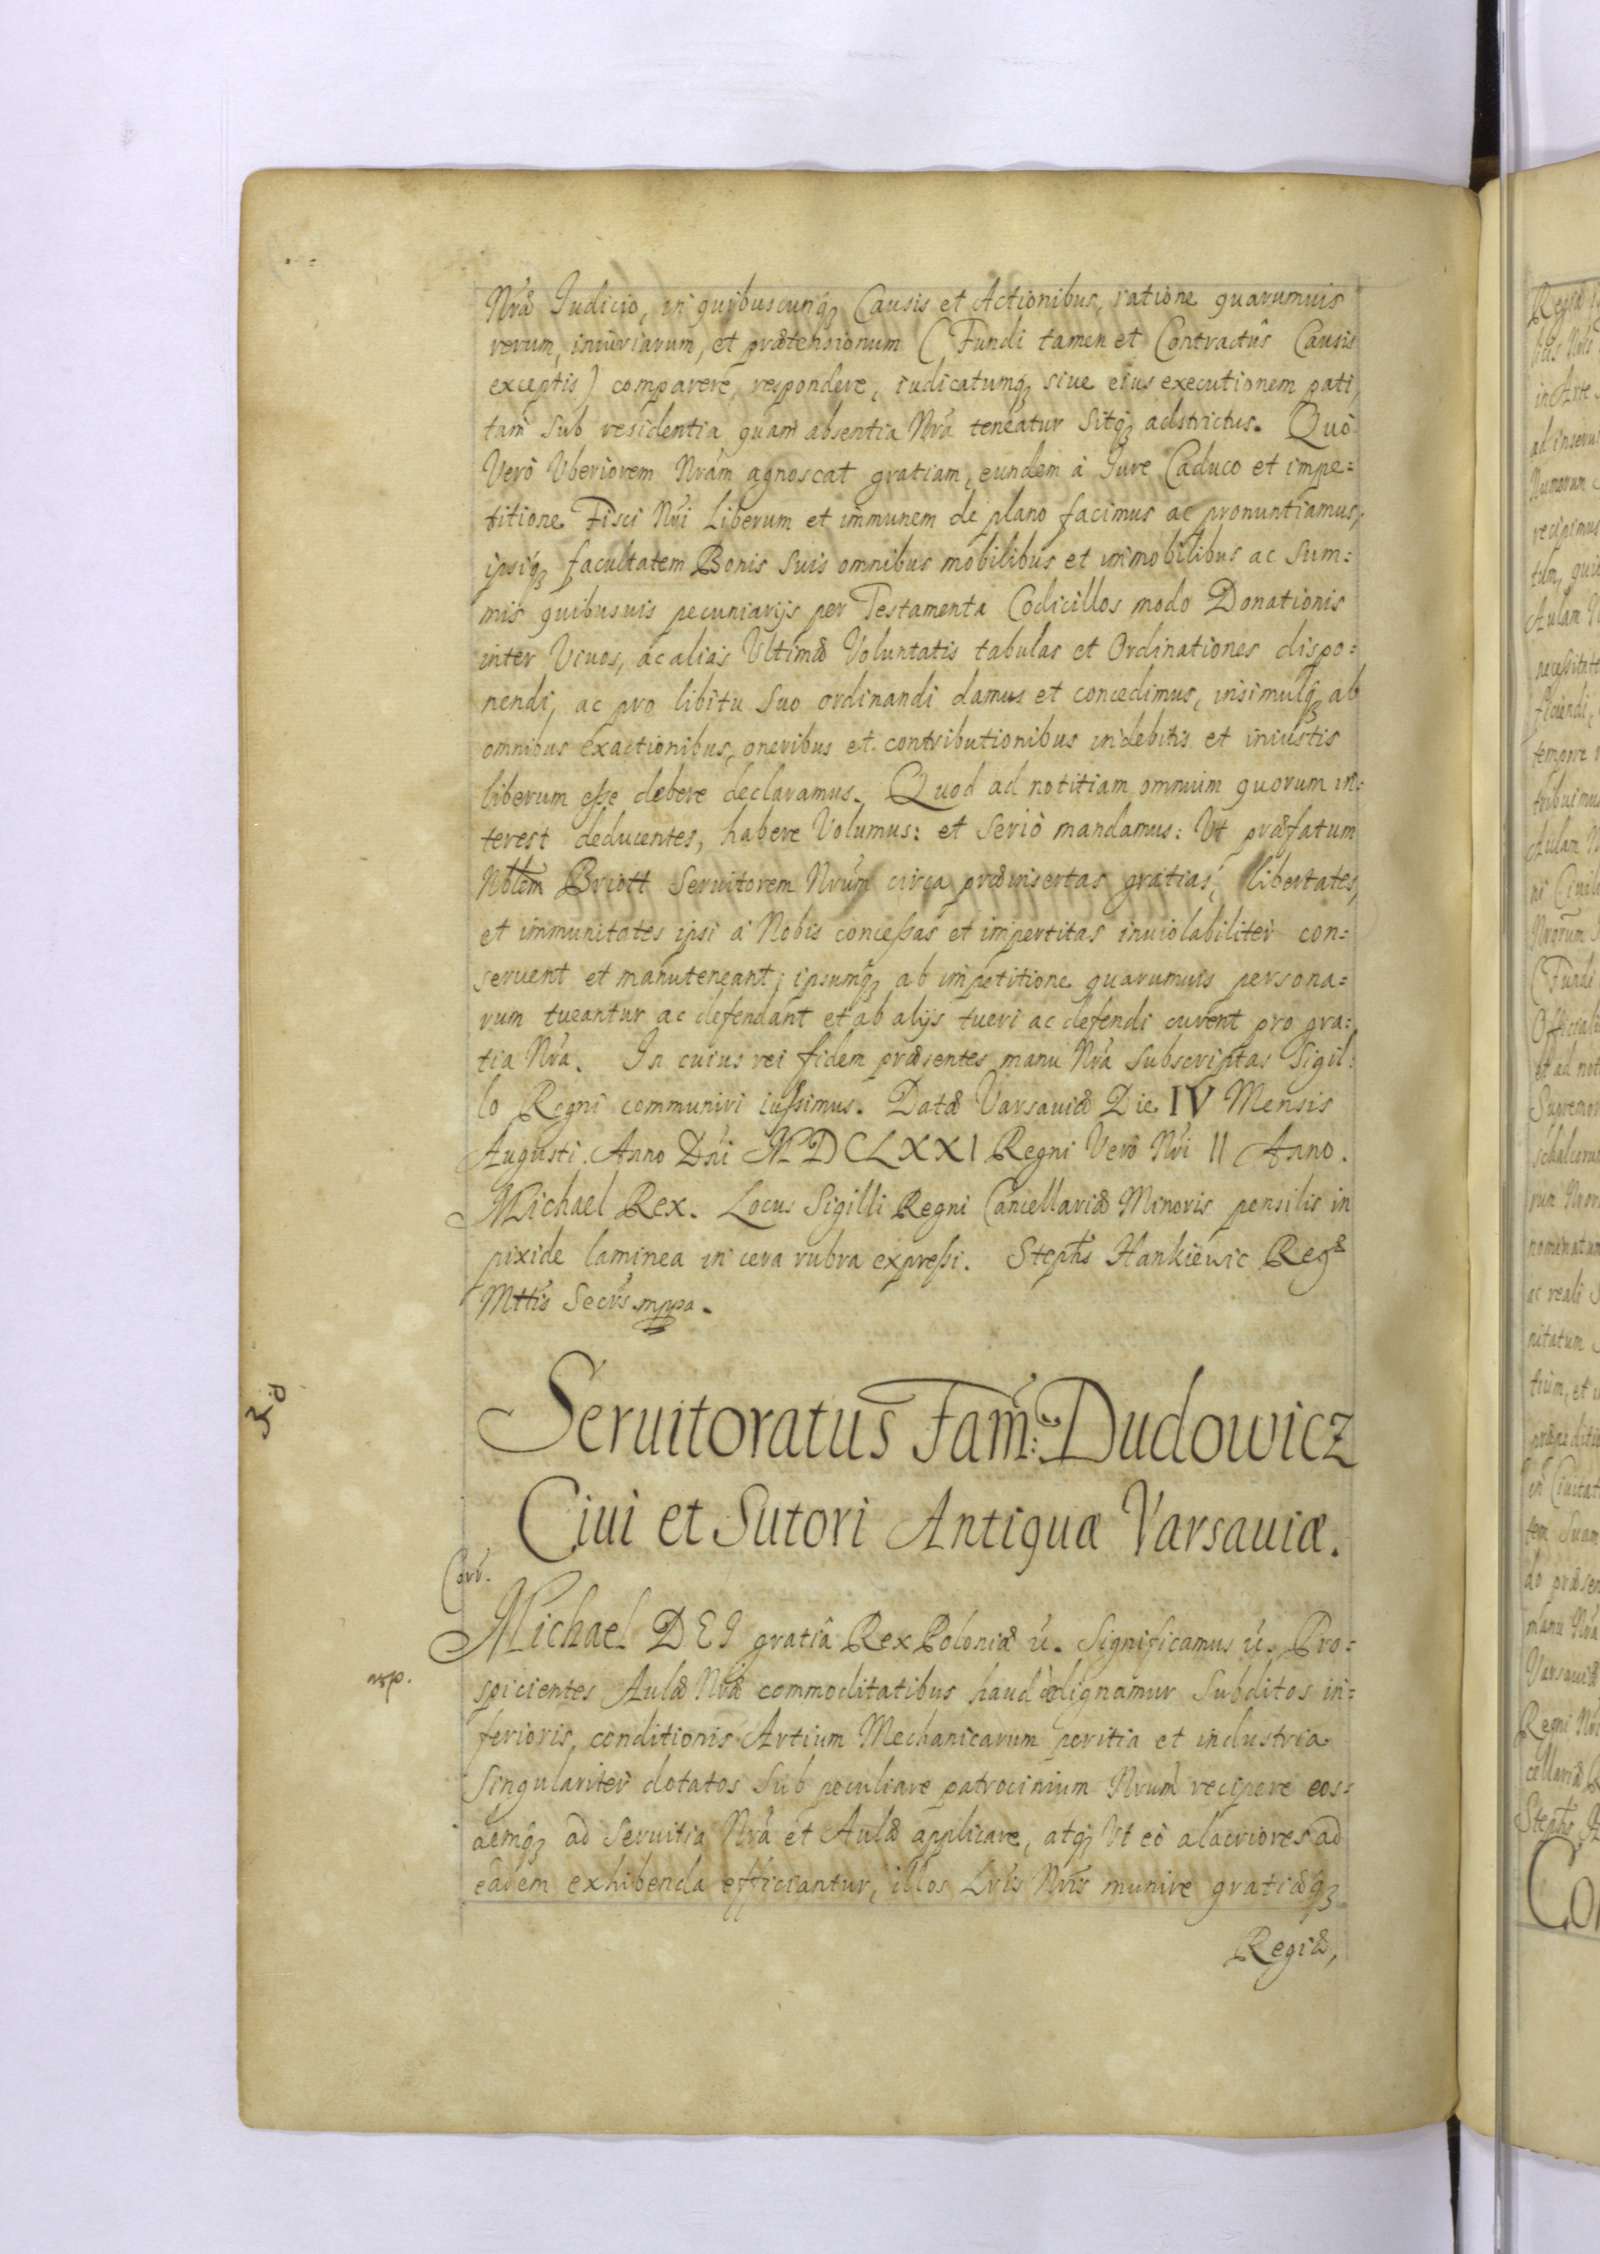 Nrae Iudicio, in quibuscunq Causis et Actionibus, ratione quarumuis
rerum, iniuriarum, et praetensionum (Fundi tamen et Contractus Causis
exceptis) comparere, respondere, iudicatumq siue eius executionem pati
tam sub residentia quam absentia Nra teneatur sitq adstrictus. Quò
Verò Vberiorem Nram agnoscat gratiam, eundem à Iure Caduco et impe=
titione Fisci Nri Liberum et immunem de plano facimus ac pronuntiamus,
ipsiq facultatem Bonis suis omnibus mobilibus et immobilibus ac sum=
mis quibusuis pecuniarijs per Testamenta Codicillos modo Donationis
inter Viuos, ac alias Vltimae Voluntatis tabulas et Ordinationes dispo=
nendi, ac pro libitu suo ordinandi damus et concedimus, insimulq ab
omnibus exactionibus, oneribus et contributionibus indebitis et iniustis
liberum esse debere declaramus. Quod ad notitiam omnium quorum in=
terest deducentes, habere Volumus: et seriò mandamus: Vt praefatum
Nblem Briott Seruitorem Nrum circa praeinsertas gratias, libertates,
et immunitates ipsi à Nobis concessas et impertitas inuiolabiliter con=
seruent et manuteneant; ipsumq ab impetitione quarumuis persona=
rum tueantur ac defendant et ab alijs tueri ac defendi curent pro gra=
tia Nra. In cuius rei fidem praesentes manu Nra subscriptas Sigil=
lo Regni communiri iussimus. Datae Varsauiae Die IV Mensis
Augusti Anno Dni MDCLXXI Regni Verò Nri II Anno.
Michael Rex. Locus Sigilli Regni Cancellariae Minoris pensilis in
pixide laminea in cera rubra expressi. Stephs Hankiewic Regae
Mttis Secrs mppa.
Seruitoratus Fam: Dudowicz
Ciui et Sutori Antiquae Varsauiae.
Corr.
Michael DEI gratiâ Rex Poloniae &. Significamus &. Pro=
spicientes Aulae Nrae commoditatibus haud dedignamur Subditos in=
ferioris conditionis Artium Mechanicarum peritia et industria
singulariter dotatos sub peculiare patrocinium Nrum recipere eos=
demq ad seruitia Nra et Aulae applicare, atq Vt eò alacriores ad
eadem exhibenda efficiantur, illos Lris Nris munire gratiaeq
Regiae,